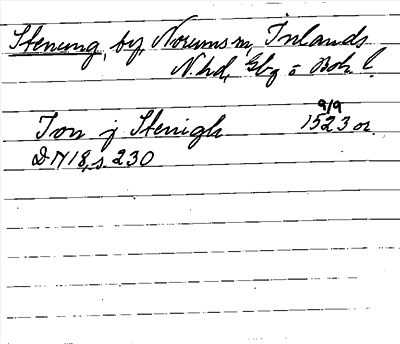 Stenung, by, Norums sn, Inlands
N. hd, Gbg o Boh l.
9/9
Ion j Stenigh 1523 or.
DN 18, s. 230